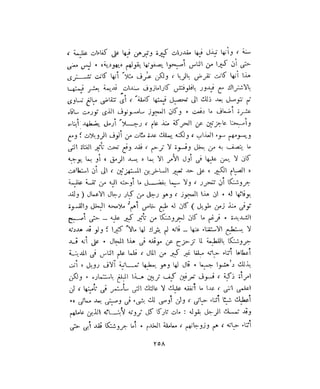 سنة ، وأنها تبذل فيها مقدرنات كبيرة وتبرهن فيها على كفاءات عظيمة ،
حتى أن كثيرا من الناس أصبحوا يصفونها بقولهم «يهودية» • ليس معنى
هذا أنها كانت تقرض بالربا ، ولكن عرف مثلا أنها كانت تشترى
بالاشتراك مع فيدور بافلوفتش كارامازوف سندات قديمة بعشر قيمتها
ثم تتوصل بعد ذلك الى تحصيل قيمتها كاملة ، أى تتقاضى مبالغ تساوى
عشرة أضعاف ما دفعت • وكان العجوز سامسونوف الذى تورمت ساقاه
وأصبحتا عاجزتين عن الحركة منذ عام ، رجلا أرمل يضطهد أبناءه
ويسومهم سوء العذاب ، ولكنه يملك عدة مئات من ألوف الروبلات ؛ ومع
ما يتصف به من بخل وقسوة لا ترحم ، فقد وقع تحت تأثير الفتاة التى
كان لا يمن عليها فى أول الأمر الا بما « يسد الرمق ، أو بما يوجبه
« الصيام الكبير » على حد تعبير الساخرين المستهزئين ، الى أن استطاعت
جروشنكا أن تتحرر ، ولا سيما بفضل ما أوحته اليه من ثقة عظيمة
بوفائها له • ان هذا العجوز ، وهو رجل من كبار رجال الأعمال ( ولقد
توفى منذ زمن طويل ) كان له طبع خاص أهم ملامحه البخل والقسوة
الشديدة • فرغم ما كان لجروشنكا من تأثير كبير عليه – حتى أصبح
لا يستطيع الاستغناء عنها – فانه لم يترك لها مالا كثيرا ؛ ولو قد هددته
جروشنكا بالقطيعة لما تزحزح عن موقفه فى هذا المجال • على أنه قد
أعطاها أثناء حياته مبلغا غير كبير من المال ، فلما علم الناس فى المدينة
بذلك دهشوا جميعا • قال لها وهو يعطيها ثمانية آلاف روبل : أنت
امرأة ذكية ، فسوف تعرفين كيف تربين هذا المبلغ باستثماره • ولكن
اعلمى أننى ، عدا ما أنفقه عليك لا عالتك التى سأستمر فى تأمينها ، لن
أعطيك شيئا أثناء حياتى ، ولن أوصى لك بشىء فى وصيتى بعد مماتى •»
وقد تمسك الرجل بقوله : مات تاركا كل ثروته لأبنائه الذين عاملهم
أثناء حياته ، هم وزوجاتهم ، معاملة الخدم • أما جروشنكا فقد أبى حتى
٢٥٨